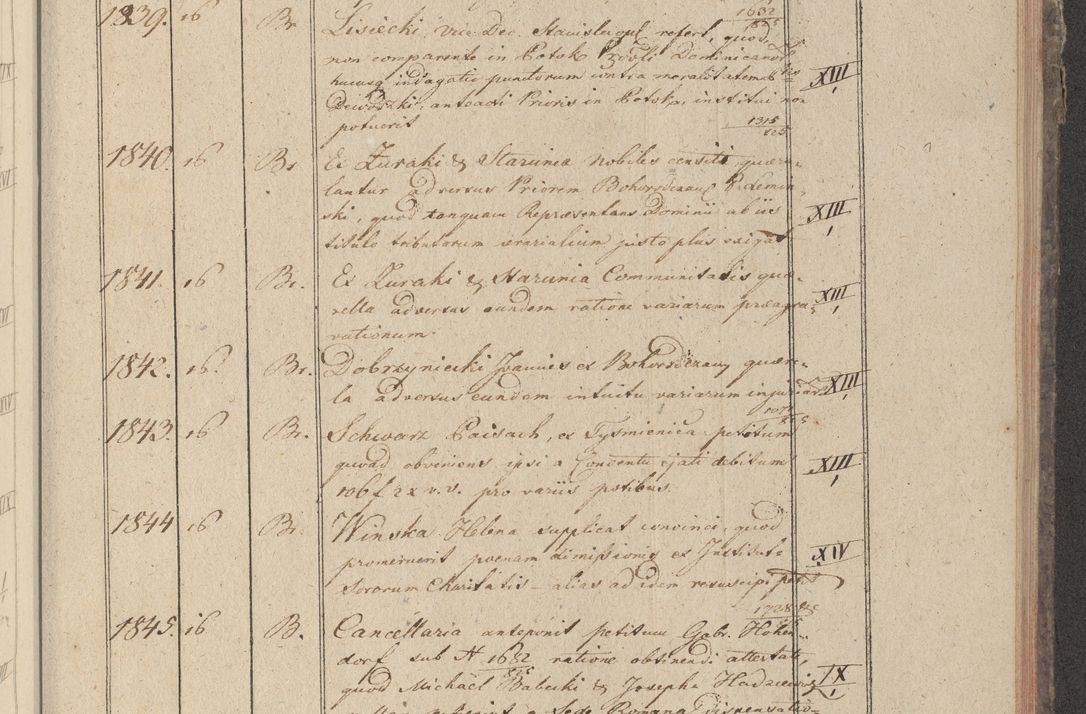 1839. 16 Br Lisiecki, vice Dec. refert, quod 1632/825
non comparente in Potok Dominicanor
hucusq indagatio punctorum contra moralitatem XIII/1
anteacti Prioris in Potoka, institui non
potuerit 1315/825
1840. 16 Br Ex Zuraki & Starunia nobiles censiti quære-
lantur adversus Priorem
ski, quod tanquam Repræsentans Dominii ab iis XIII/1
titulo tributorum ærarialium justo plus exigat
1841. 16 Br. Ex Zuraki & Starunia Communitatis quæ-
rella adversus eundem ratione variarum præagra- XIII/1
vationum
1842. 16. Br. Dobrzyniecki Joannes ex quære-
la adversus eundem intuitu variarum injuriarum XIII/1
1843. 16 Br. Schwarz Paisach, ex Tysmienica petitum
quoad obveniens ipsi a Conventu ejati debitum XIII/1
106 f 2 x v. v. pro variis potibus.
1844 16 Br. Winska Helena supplicat convinci, quod
promeruerit poenam dimissionis ex Instituto XIV/1
Sororum Charitatis – alias ad idem resuscipi petit
1845. 16 B. Cancellaria anteponit petitum Gabr. Hohen- 1728
dorf sub N 1682/825 ratione obtinendi attestati,
quod Michaël Babecki & Josepha IX/1
a Sede Romana dispensatio-